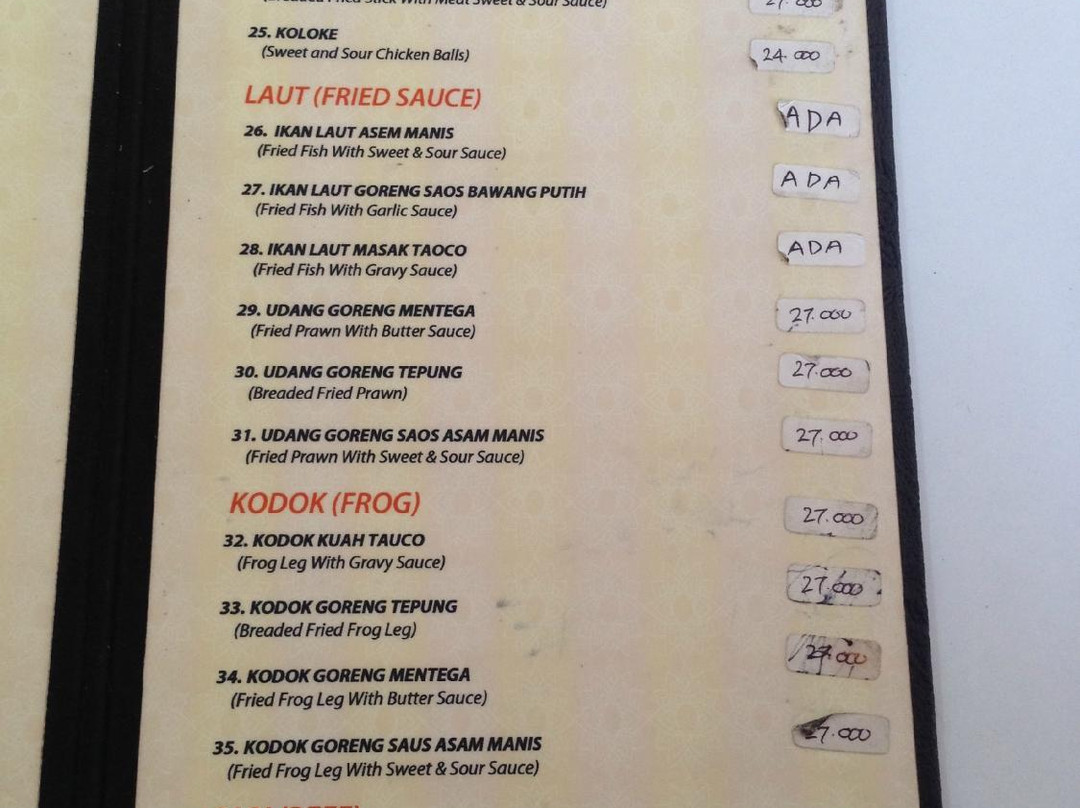 (Breaded Fried Stick With Meat Sweet & Sour Sauce) 27.000
25. KOLOKE
(Sweet and Sour Chicken Balls) 24.000
LAUT (FRIED SAUCE)
26. IKAN LAUT ASEM MANIS ADA
(Fried Fish With Sweet & Sour Sauce)
27. IKAN LAUT GORENG SAOS BAWANG PUTIH ADA
(Fried Fish With Garlic Sauce)
28. IKAN LAUT MASAK TAOCO ADA
(Fried Fish With Gravy Sauce)
29. UDANG GORENG MENTEGA 27.000
(Fried Prawn With Butter Sauce)
30. UDANG GORENG TEPUNG 27.000
(Breaded Fried Prawn)
31. UDANG GORENG SAOS ASAM MANIS 27.000
(Fried Prawn With Sweet & Sour Sauce)
KODOK (FROG)
32. KODOK KUAH TAUCO 27.000
(Frog Leg With Gravy Sauce)
33. KODOK GORENG TEPUNG 27.000
(Breaded Fried Frog Leg)
34. KODOK GORENG MENTEGA 27.000
(Fried Frog Leg With Butter Sauce)
35. KODOK GORENG SAUS ASAM MANIS 27.000
(Fried Frog Leg With Sweet & Sour Sauce)